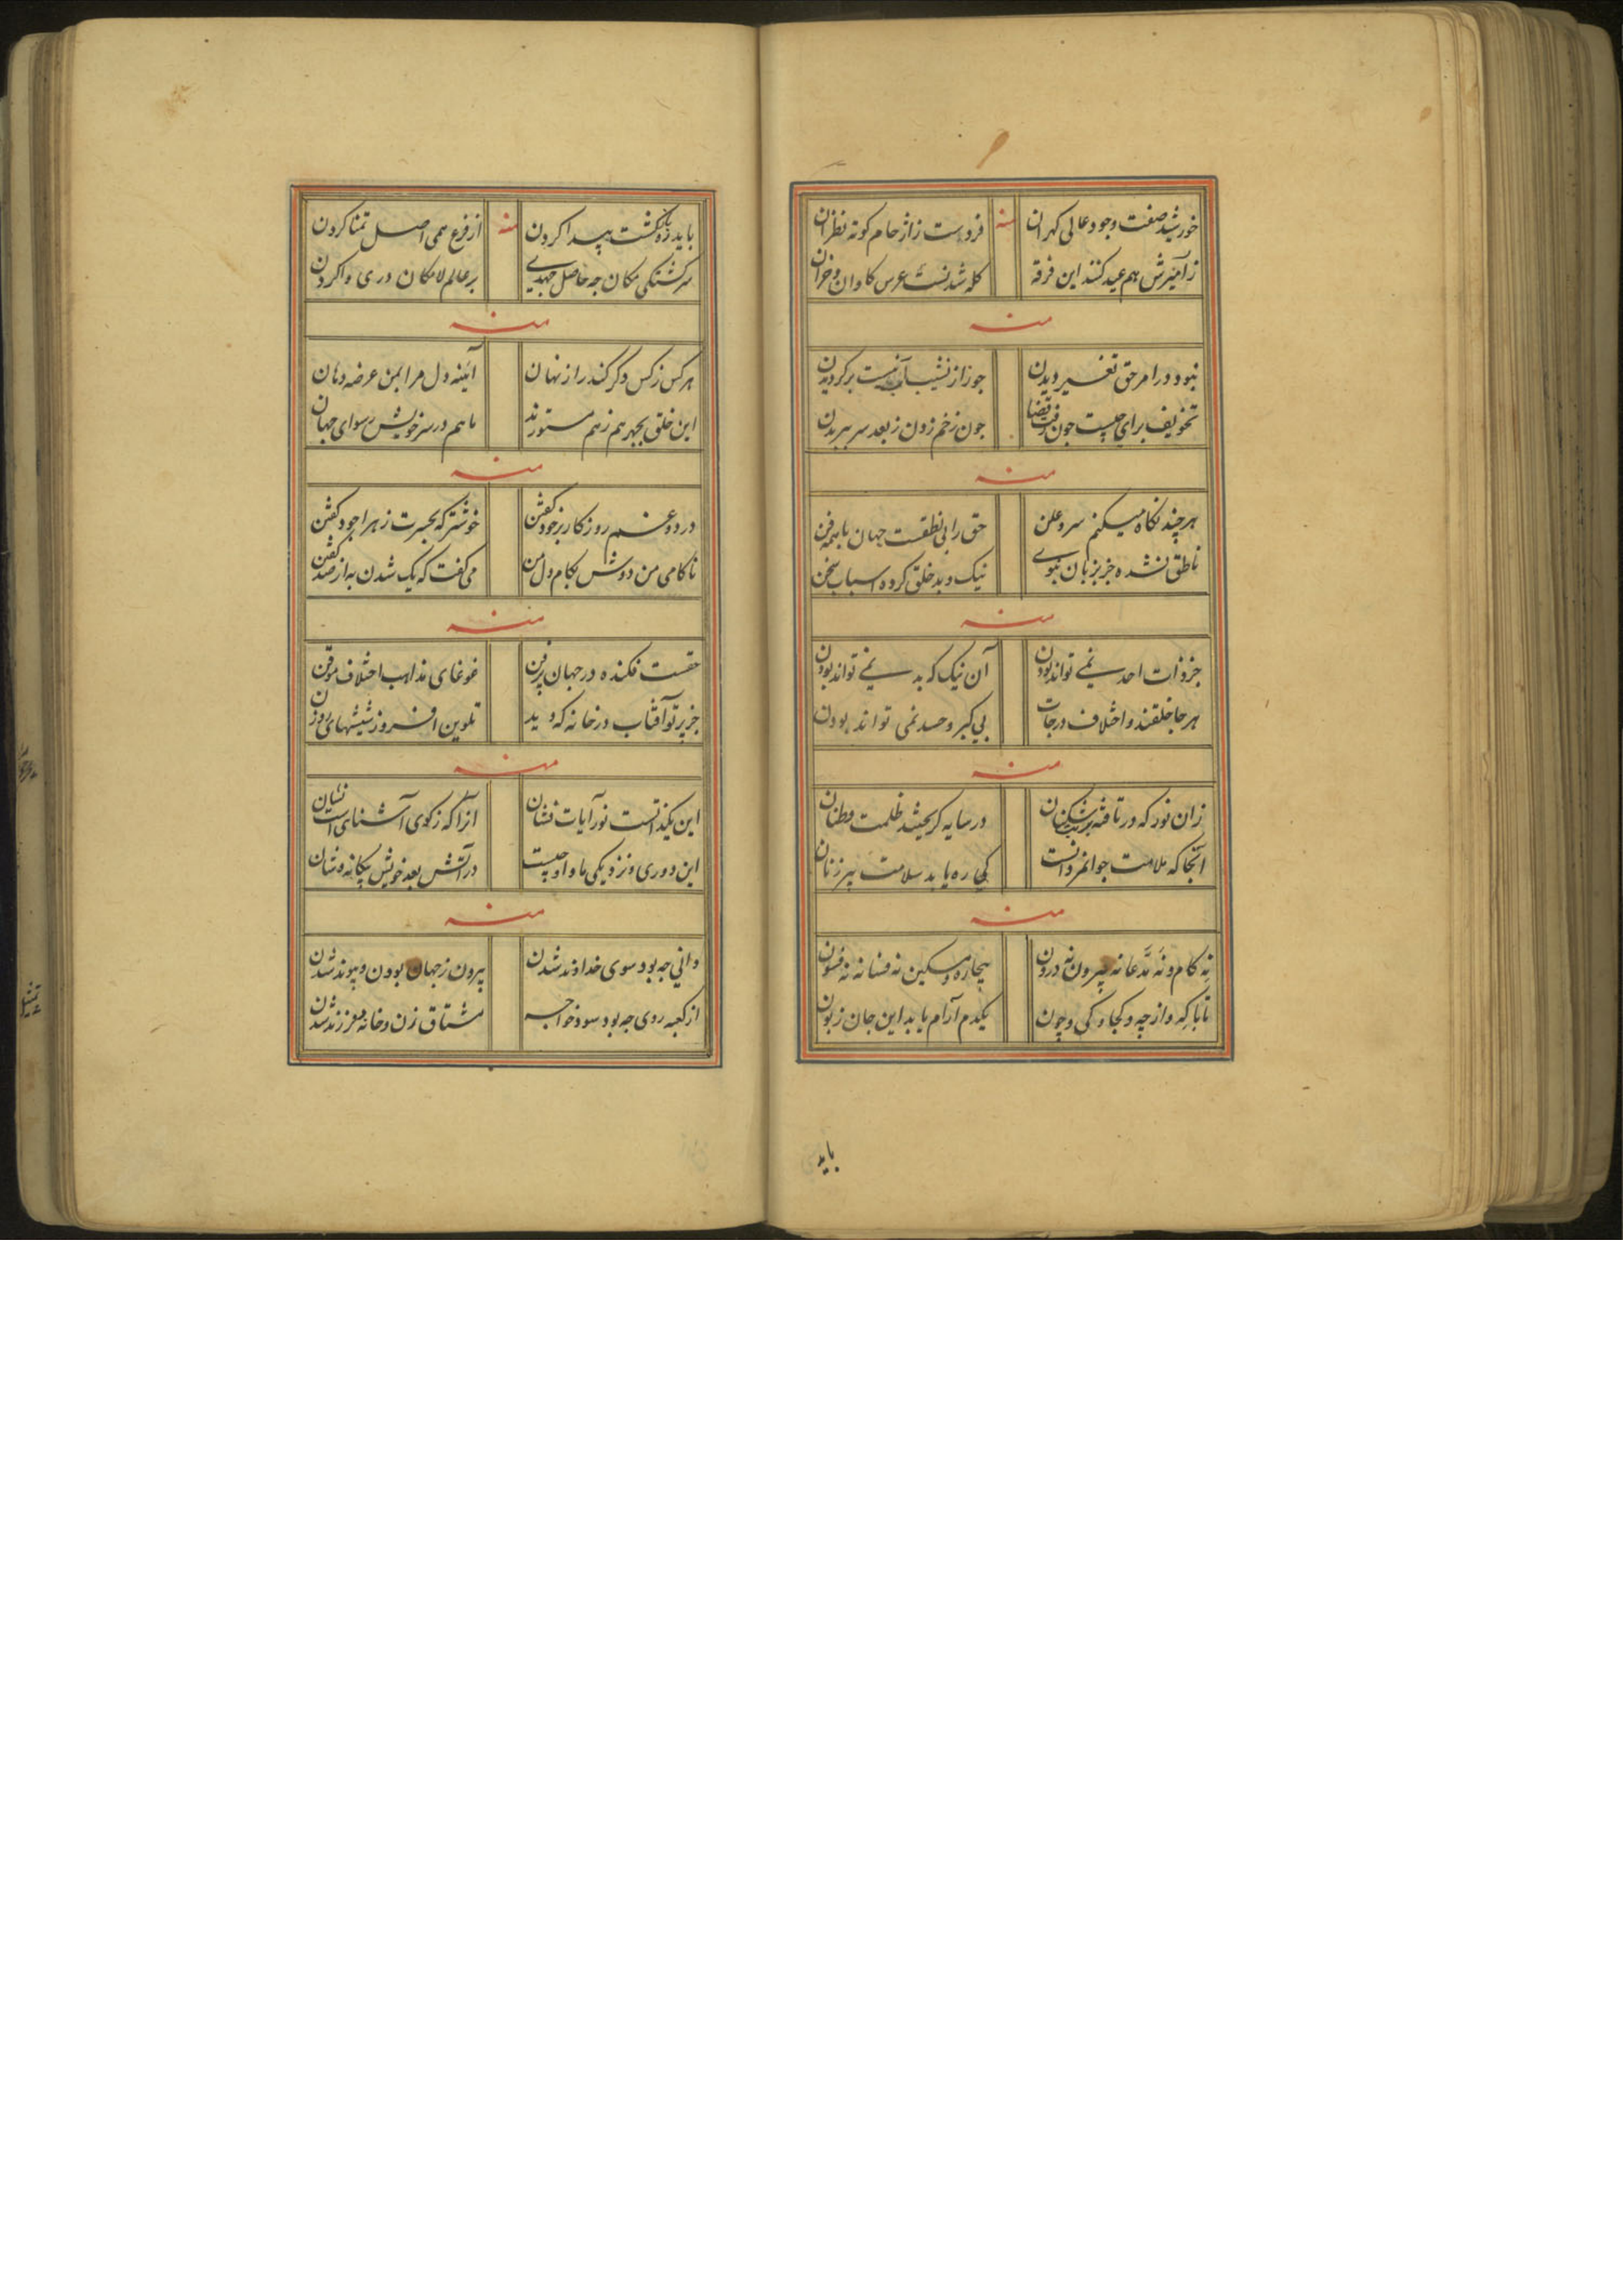 خورشید صفت وجود عالی کهران منه فردست زاژحام کوته نظران
زآمیزش هم عید کنند این فرقه کله شدنست عرس کاوان و خران
منه
نبود ورا مر حق تغیر دیدن جوزا از نشیب نیست برکردیدن
تخویف برای چیست جون رفت قضا جون زخم زدن ز بعد سر ببریدن
منه
هر چند نکاه میکنم سر و علن حق رابی نطقست جهان با همه فن
ناطق نشده جز بزبان نبوی نیک و بد خلق کرده اسباب سخن
منه
جز ذات احد نمی تواند بودن آن نیک که بد نمی تواند بودن
هر جا خلقند و اختلاف درجات بی کبر و حسد نمی تواند بودن
منه
زان نور که در تافته بر شکنان در سایه کریختند ظلمت وطنان
آنجا که ملامت جوانمردانست کی ره یابد سلامت پیرزنان
منه
نه کام و نه مدعا نه بیرون نه درون بیچاره و مسکین نه فسانه نه فسون
تا با که و از چه و کجا و کی و چون یکدم آرام یابد این جان زبون
باید
باید ره بازکشت پیدا کردن منه از فرع همی اصل تمنا کردن
سرکشتکی مکان چه حاصل جهدی بر عالم لامکان دری وا کردن
منه
هر کس ز کس دکر کند راز نهان آئینه دل مرا بمن عرضه دهان
این خلق بجهر هم ز هم مستورند ما هم در سر خویش رسوای جهان
منه
درد و غم روزکار بر خود کفتن خوشتر که بحسرت زهرا جود کفتن
ناکامی من دوش بکام دل من می کفت که یک شدن به از صد کفتن
منه
حقست فکنده در جهان پرفن غوغای مذاهب اختلاف موقن
جز پرتو آفتاب در خانه که دید تلوین افروز شیشهای روزن
منه
این یکذاتست نور آیات فشان آنرا که ز کوی آشنای است نشان
این دوری و نزدیکی ما و او چیست در آتش بعد خویش بیکانه وشان
منه
دانی جه بود سوی خداوند شدن بیرون ز جهان بودن و پیوند شدن
از کعبه روی جه بود سود خواجه مشتاق زن و خانه و فرزند شدن